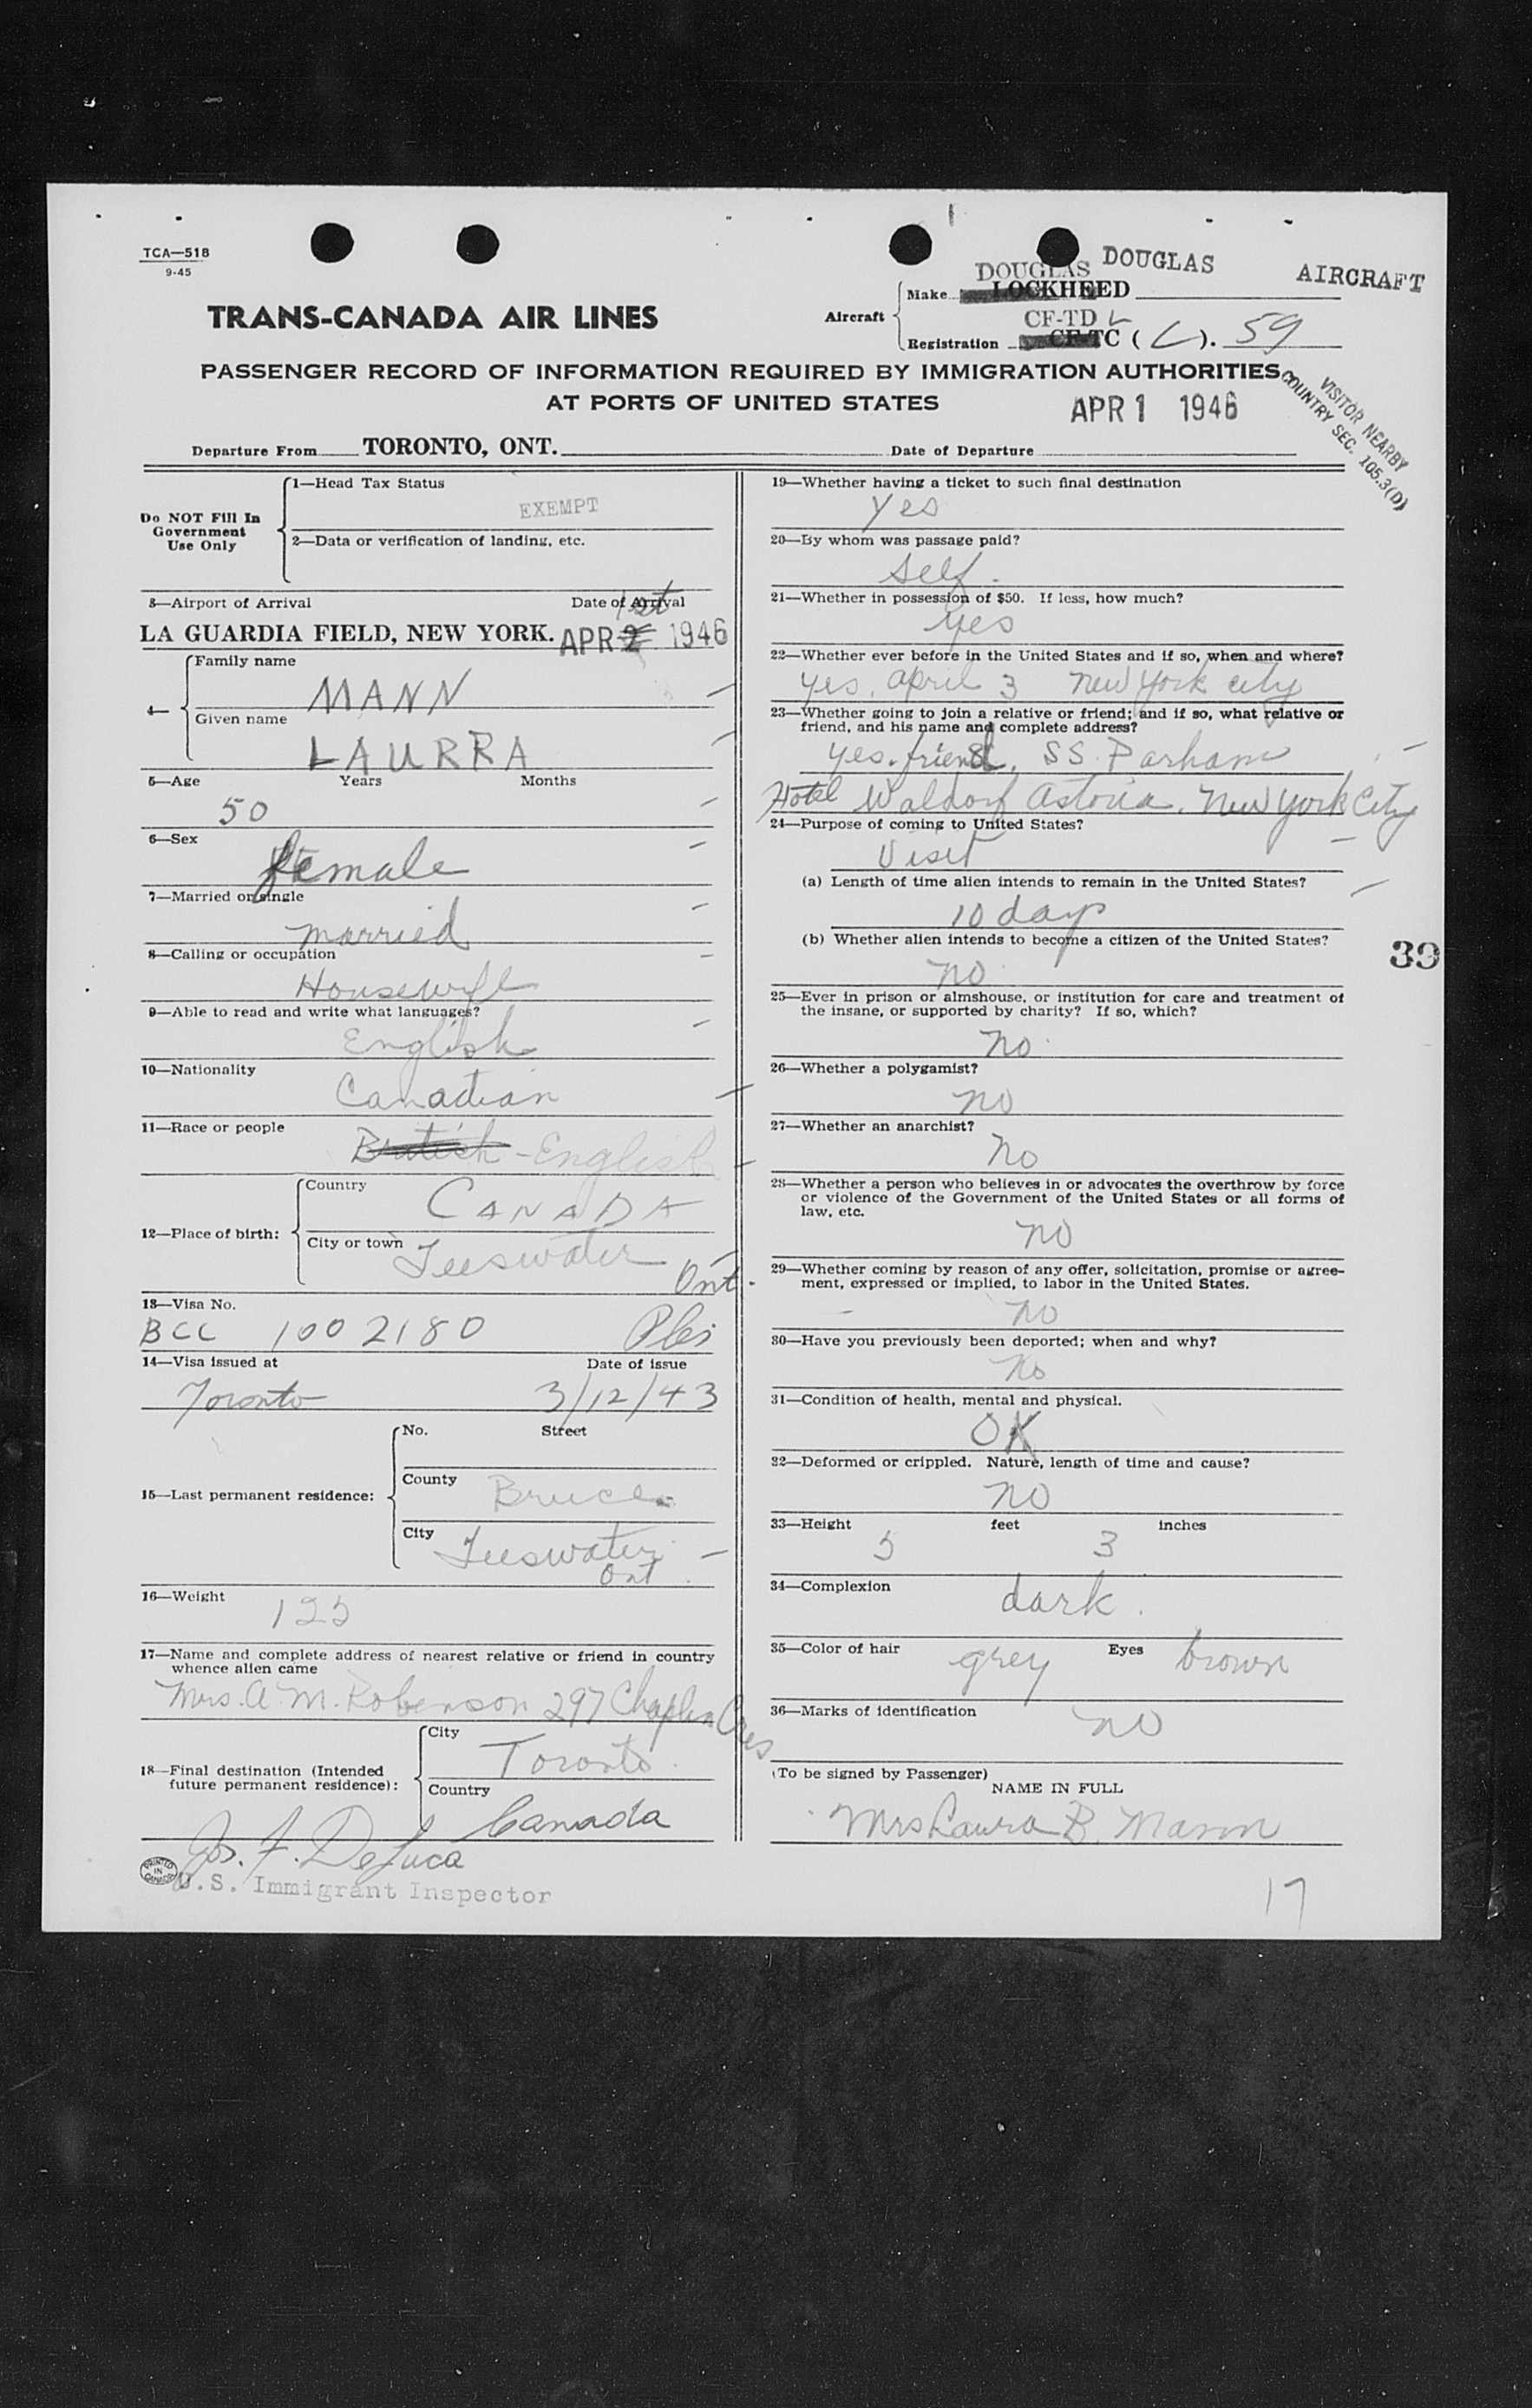 TCA—518
9-45
DOUGLAS DOUGLAS AIRCRAFT
Aircraft
Make LOCKHEED
CF-TD L
Registration CF-TC ( L ). 59
TRANS-CANADA AIR LINES
PASSENGER RECORD OF INFORMATION REQUIRED BY IMMIGRATION AUTHORITIES
AT PORTS OF UNITED STATES
APR 1 1946
VISITOR NEARBY
COUNTRY SEC. 105.3(D)
Departure From TORONTO, ONT. Date of Departure
Do NOT Fill In
Government
Use Only
1—Head Tax Status
EXEMPT
2—Data or verification of landing, etc.
3—Airport of Arrival Date of Arrival
1st
LA GUARDIA FIELD, NEW YORK. APR 2 1946
4—
Family name
MANN
Given name
LAURRA
5—Age Years Months
50
6—Sex
female
7—Married or single
married
8—Calling or occupation
Housewife
9—Able to read and write what languages?
English
10—Nationality
Canadian
11—Race or people
British - English
12—Place of birth:
Country
CANADA
City or town
Teeswater
Ont.
13—Visa No.
BCC 1002180
14—Visa issued at Date of issue
Toronto 3/12/43
15—Last permanent residence:
No. Street
County
Bruce
City
Teeswater
Ont
16—Weight
125
17—Name and complete address of nearest relative or friend in country
whence alien came
Mrs. A. M. Robenson 297 Chaplin Cres
18—Final destination (Intended
future permanent residence):
City
Toronto.
Country
Canada
Jos. F. DeLuca
PRINTED IN CANADA
U.S. Immigrant Inspector
19—Whether having a ticket to such final destination
Yes
20—By whom was passage paid?
Self.
21—Whether in possession of $50. If less, how much?
yes
22—Whether ever before in the United States and if so, when and where?
yes, april 3 New York city
23—Whether going to join a relative or friend; and if so, what relative or
friend, and his name and complete address?
yes. friend, SS. Parham
Hotel Waldorf Astoria. New York City
24—Purpose of coming to United States?
Visit
(a) Length of time alien intends to remain in the United States?
10 days
(b) Whether alien intends to become a citizen of the United States?
39
no
25—Ever in prison or almshouse, or institution for care and treatment of
the insane, or supported by charity? If so, which?
no
26—Whether a polygamist?
no
27—Whether an anarchist?
No
28—Whether a person who believes in or advocates the overthrow by force
or violence of the Government of the United States or all forms of
law, etc.
no
29—Whether coming by reason of any offer, solicitation, promise or agree-
ment, expressed or implied, to labor in the United States.
no
30—Have you previously been deported; when and why?
No
31—Condition of health, mental and physical.
OK
32—Deformed or crippled. Nature, length of time and cause?
no
33—Height feet inches
5 3
34—Complexion
dark.
35—Color of hair grey Eyes brown
36—Marks of identification
no
(To be signed by Passenger)
NAME IN FULL
Mrs Laura B. Mann
17